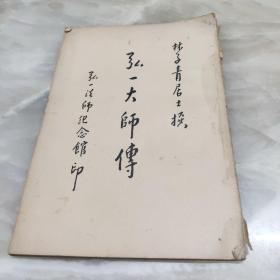 林子青居士撰
弘一大師傳
弘一法師紀念館印